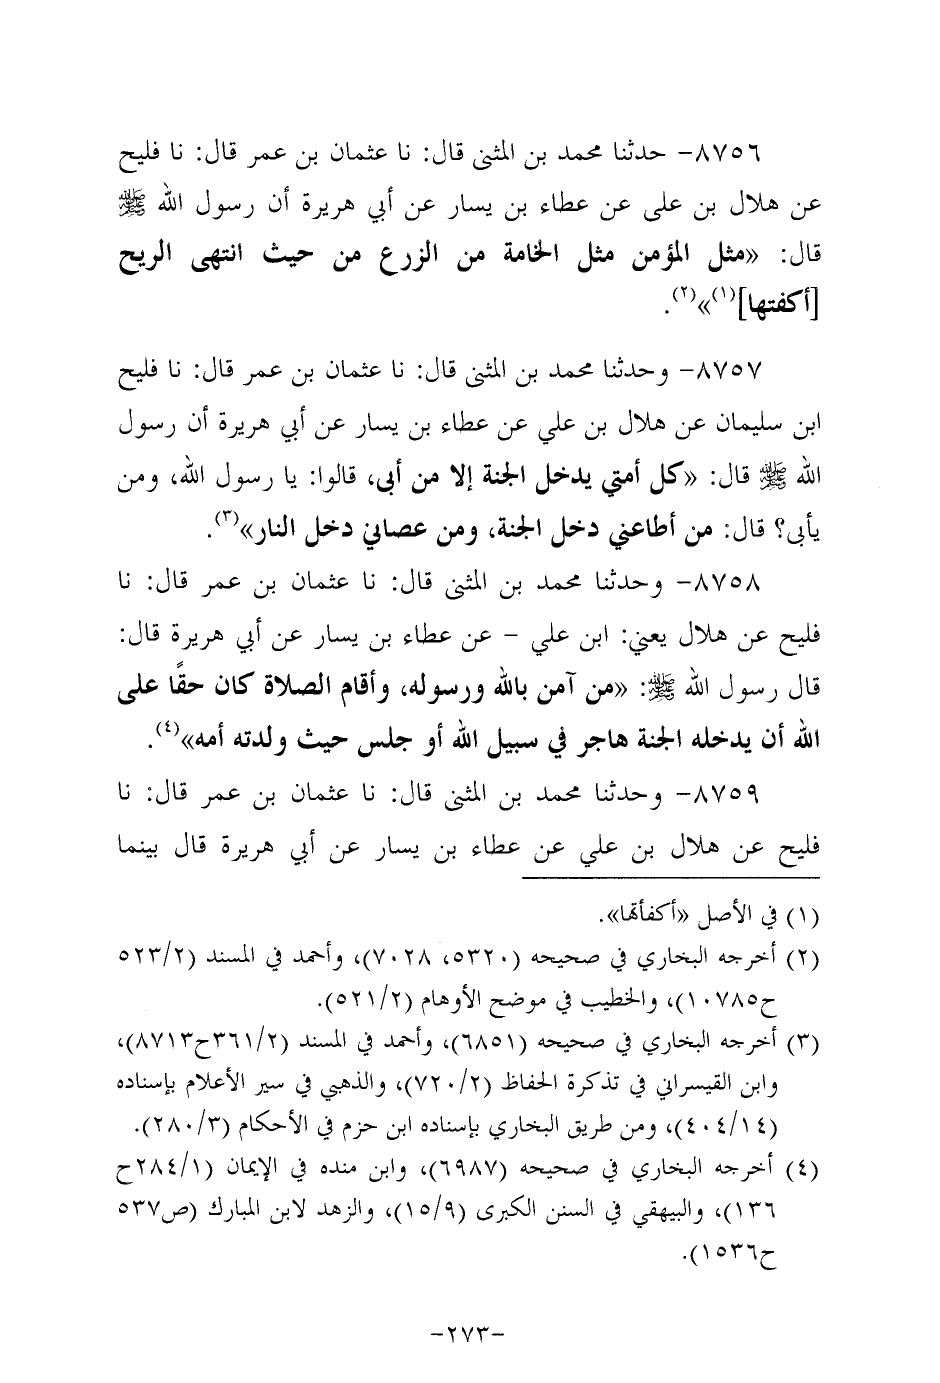 ٨٧٥٦- حدثنا محمد بن المثنى قال: نا عثمان بن عمر قال: نا فليح
عن هلال بن على عن عطاء بن يسار عن أبي هريرة أن رسول الله ﷺ
قال: «مثل المؤمن مثل الخامة من الزرع من حيث انتهى الريح
[أكفتها](١)»(٢).
٨٧٥٧- وحدثنا محمد بن المثنى قال: نا عثمان بن عمر قال: نا فليح
ابن سليمان عن هلال بن علي عن عطاء بن يسار عن أبي هريرة أن رسول
الله ﷺ قال: «كل أمتي يدخل الجنة إلا من أبى، قالوا: يا رسول الله، ومن
يأبى؟ قال: من أطاعني دخل الجنة، ومن عصاني دخل النار»(٣).
٨٧٥٨- وحدثنا محمد بن المثنى قال: نا عثمان بن عمر قال: نا
فليح عن هلال يعني: ابن علي - عن عطاء بن يسار عن أبي هريرة قال:
قال رسول الله ﷺ: «من آمن بالله ورسوله، وأقام الصلاة كان حقًا على
الله أن يدخله الجنة هاجر في سبيل الله أو جلس حيث ولدته أمه»(٤).
٨٧٥٩- وحدثنا محمد بن المثنى قال: نا عثمان بن عمر قال: نا
فليح عن هلال بن علي عن عطاء بن يسار عن أبي هريرة قال بينما
(١) في الأصل «أكفأتها».
(٢) أخرجه البخاري في صحيحه (٥٣٢٠، ٧٠٢٨)، وأحمد في المسند (٥٢٣/٢
ح١٠٧٨٥)، والخطيب في موضح الأوهام (٥٢١/٢).
(٣) أخرجه البخاري في صحيحه (٦٨٥١)، وأحمد في المسند (٣٦١/٢ح٨٧١٣)،
وابن القيسراني في تذكرة الحفاظ (٧٢٠/٢)، والذهبي في سير الأعلام بإسناده
(٤٠٤/١٤)، ومن طريق البخاري بإسناده ابن حزم في الأحكام (٢٨٠/٣).
(٤) أخرجه البخاري في صحيحه (٦٩٨٧)، وابن منده في الإيمان (٢٨٤/١ح
١٣٦)، والبيهقي في السنن الكبرى (١٥/٩)، والزهد لابن المبارك (ص٥٣٧
ح١٥٣٦).
-٢٧٣-